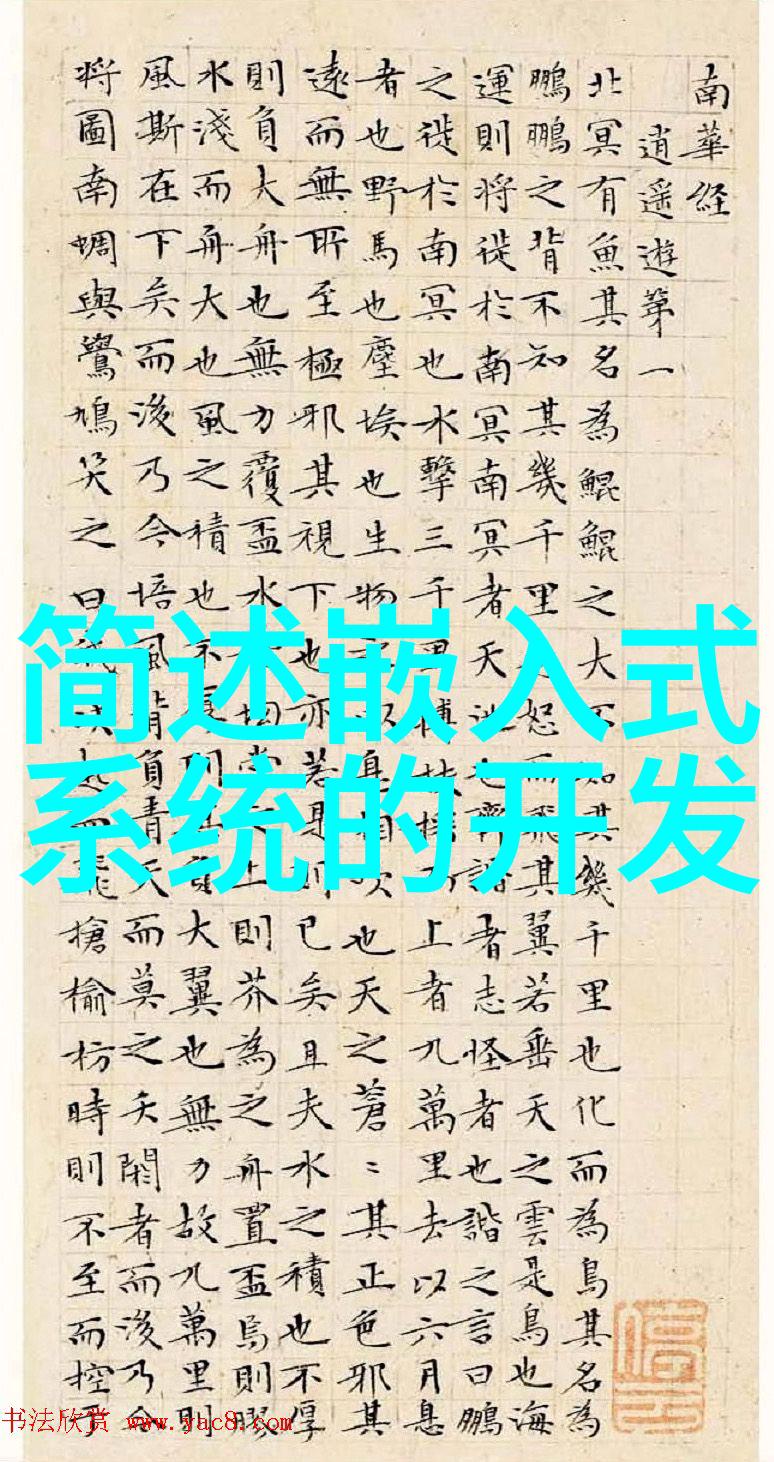 南華経
逍遥遊第一
北冥有魚其名為鯤鯤之大不知其幾千里也化而為鳥其名為
鵬鵬之背不知其幾千里怒而飛其翼若垂天之雲是鳥也海
運則将徙於南冥南冥者天池也齊諧者志怪者也諧之言曰鵬
之徙於南冥也水擊三千里搏扶摇而上者九萬里去以六月息
者也野馬也塵埃也生物之以息相吹也天之蒼〻其正色邪其
遠而無所至極邪其視下也亦若是則已矣且夫水之積也不厚
則負大舟也無力覆盃水坳堂之上則芥為之舟置盃焉則膠
水淺而舟大也風之積也不厚則其負大翼也無力故九萬里則
風斯在下矣而後乃今培風背負青天而莫之夭閼者而後乃今
将圖南蜩與鷽鳩笑之曰我決起而飛搶榆枋時則不至而控於
简述嵌入式
系统的开发
书法欣赏 www.yac8.com